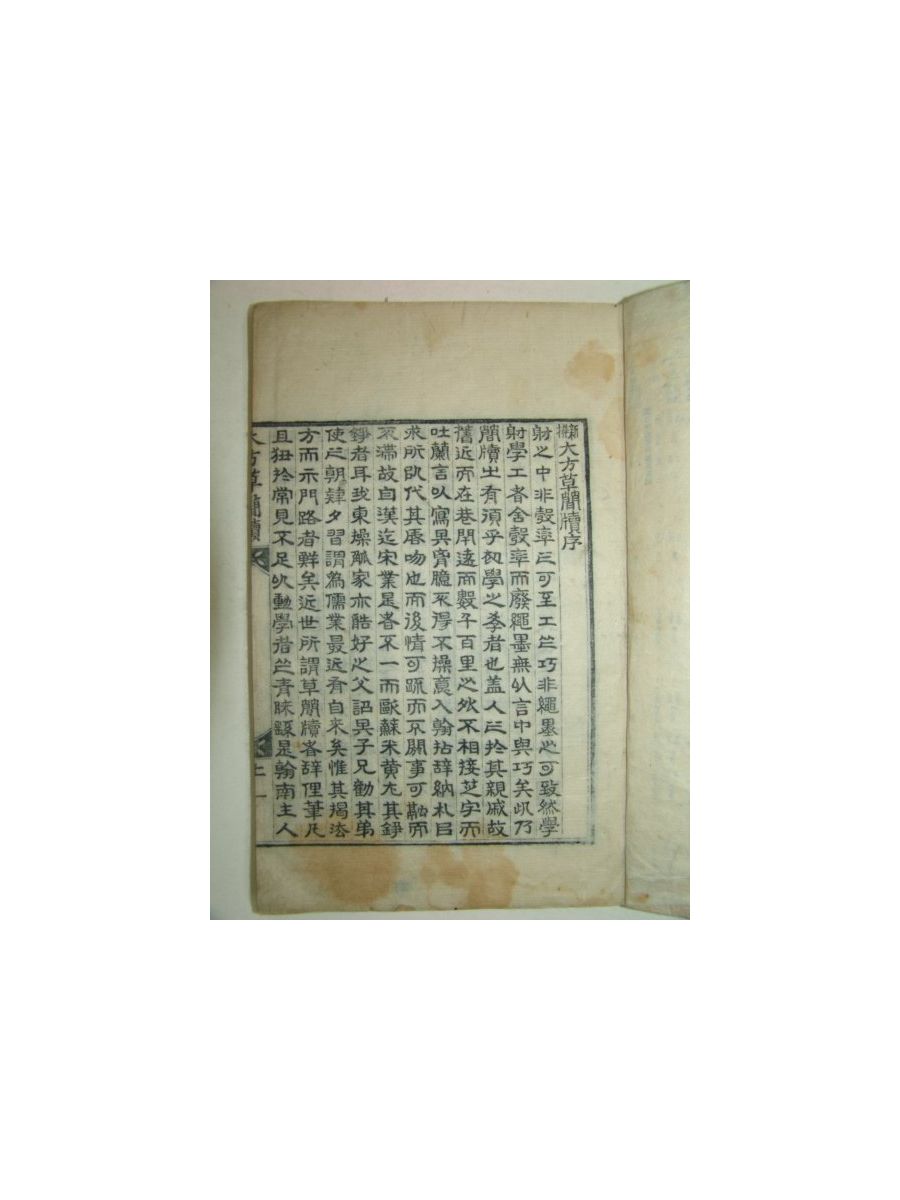 大方草簡牘序
射之中非彀率之可至工之巧非繩墨之可致然學
射學工者舍彀率而廢繩墨無以言中與巧矣此乃
簡牘之有須乎初學之孝者也盖人之於其親戚故
舊近而在巷閈遠而數千百里之外不相接芝字而
吐蘭言以寫其胷臆不得不操意入翰拈辞納札
求所以代其唇吻也而後情可疏而不關事可融而
不滞故自漢迄宋業是者不一而歐蘇米黄尤其錚
錚者耳我東操觚家亦酷好之父詔其子兄勸其弟
使之朝肄夕習謂為儒業最近有自来矣惟其揭法
方而示門路者鮮矣近世所謂草簡牘者辞俚筆凡
且狃於常見不足以動學者之青睞是翰南主人
大方草簡牘 上 一